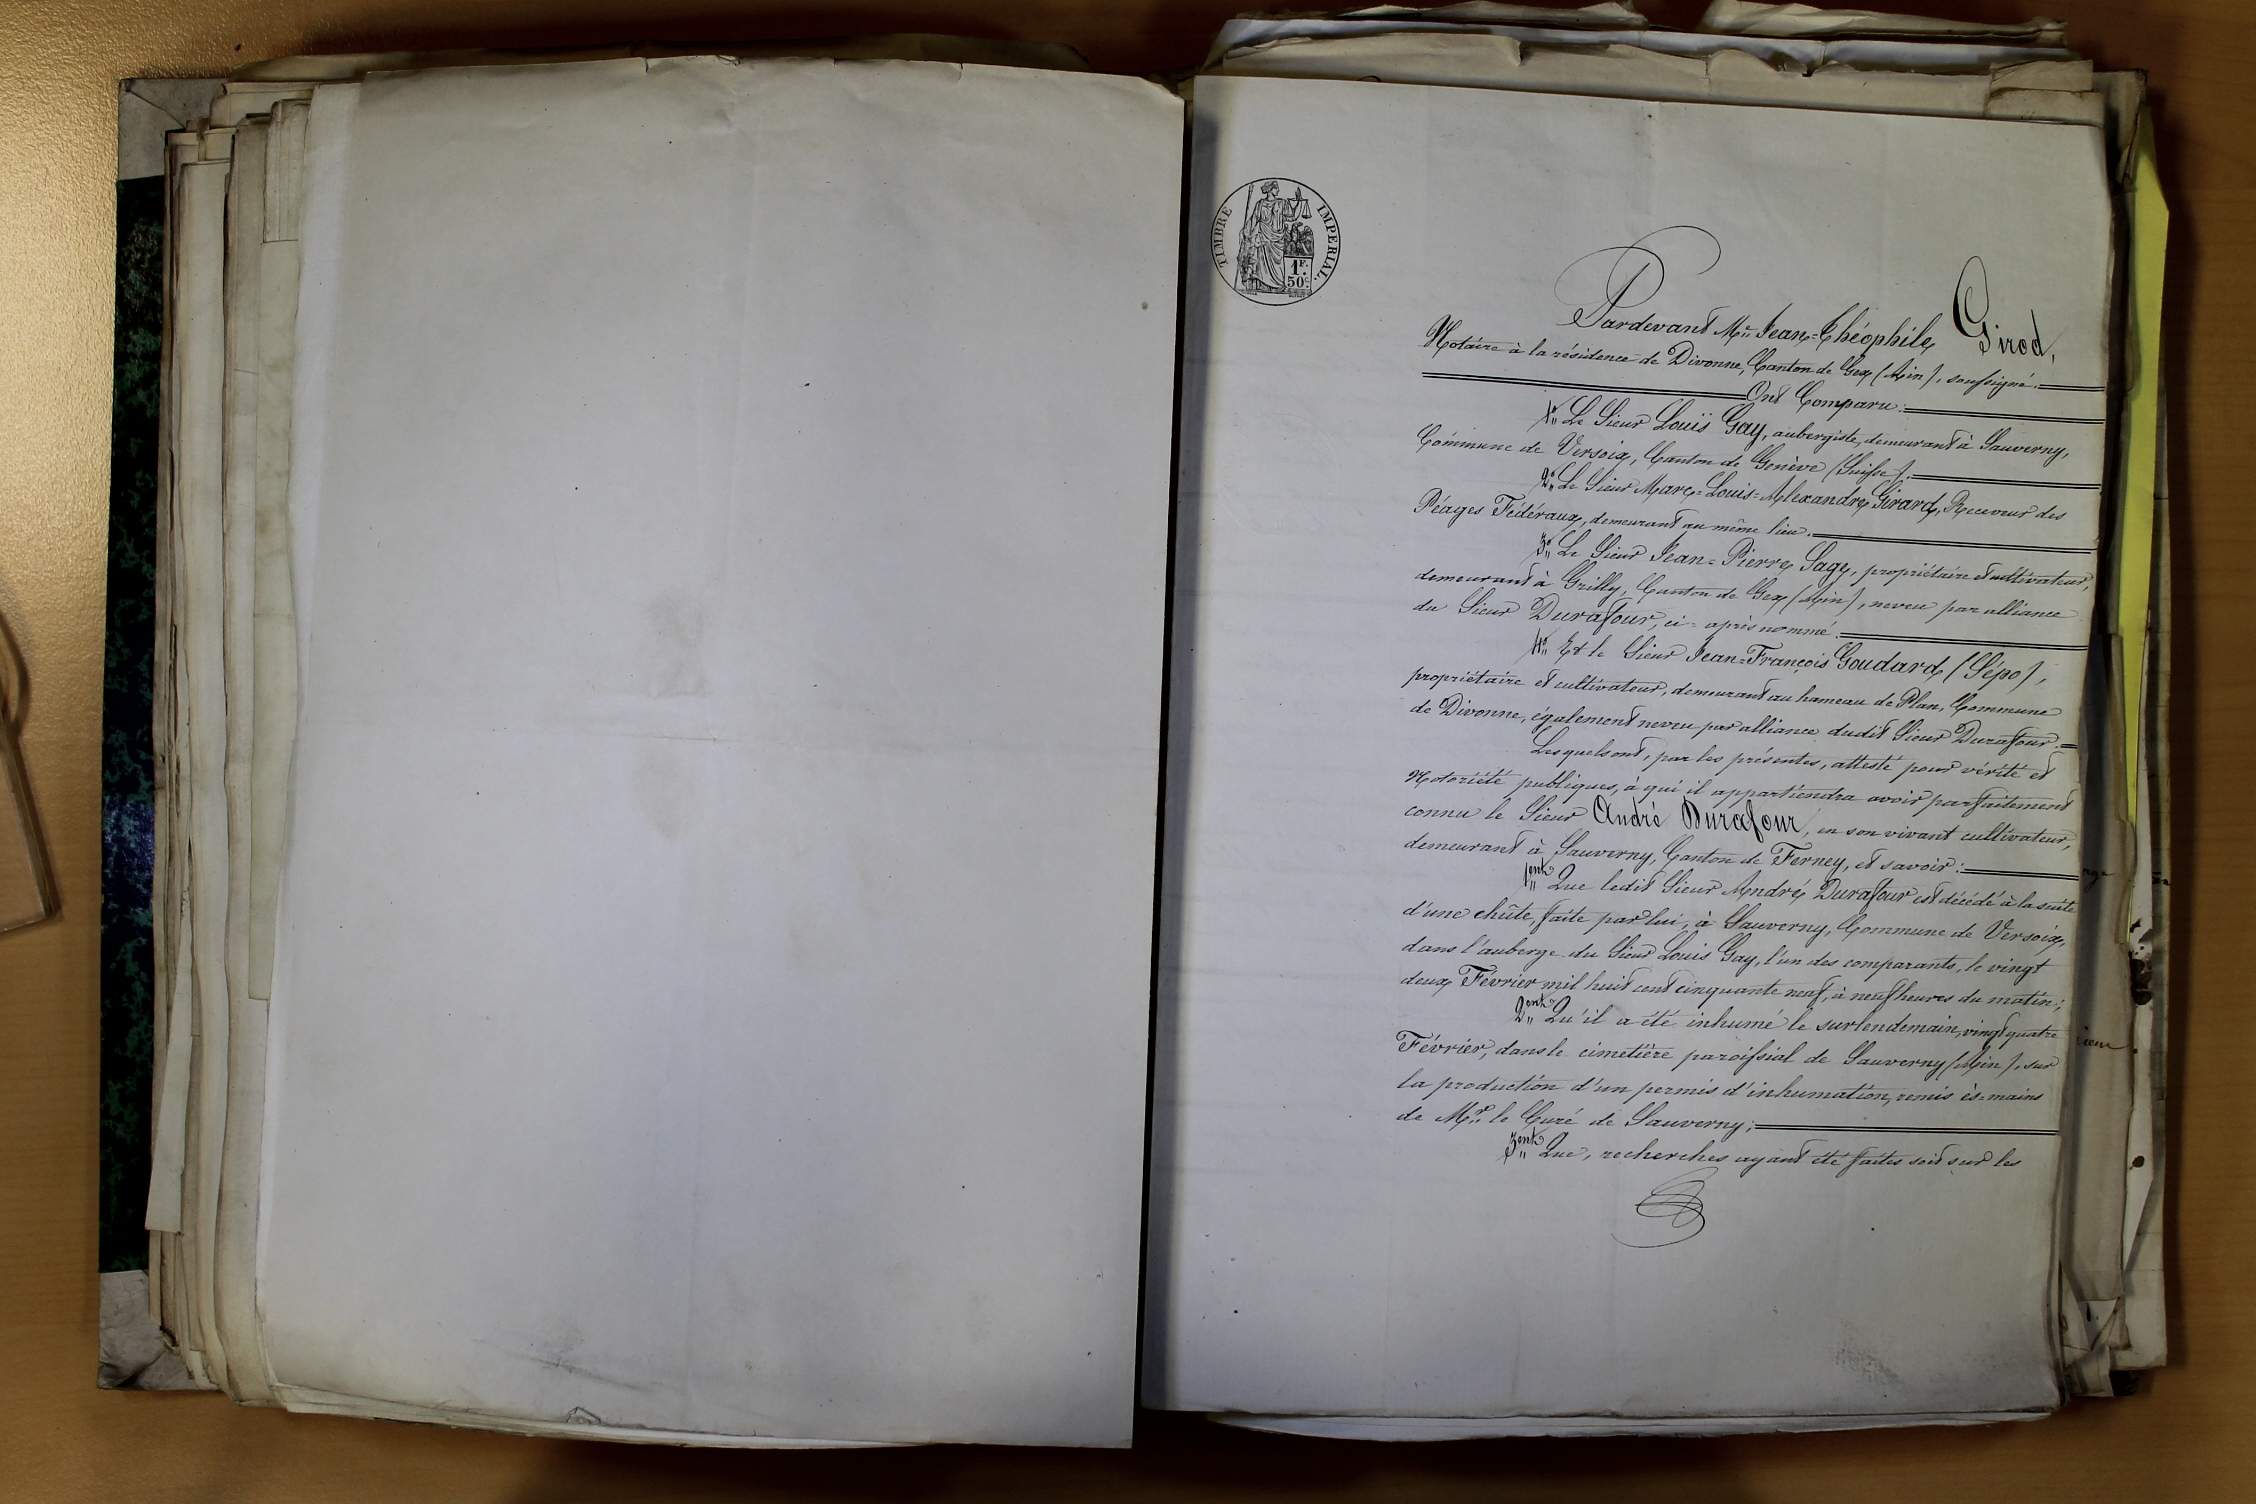 TIMBRE IMPERIAL.
1F.
50c.
Pardevant Me. Jean=Théophile Girod,
Notaire à la résidence de Divonne, Canton de Gex (Ain), soussigné.
Ont Comparu:
1° Le Sieur Louis Gay, aubergiste, demeurant à Sauverny,
Commune de Versoix, Canton de Genève (Suisse).
2° Le Sieur Marc=Louis=Alexandre Girard, Receveur des
Péages Fédéraux, demeurant au même lieu.
3° Le Sieur Jean=Pierre Sage, propriétaire et cultivateur,
demeurant à Grilly, Canton de Gex (Ain), neveu par alliance
du Sieur Durafour, ci=après nommé.
4° Et le Sieur Jean=François Goudard (Sépo),
propriétaire et cultivateur, demeurant au hameau de Plan, Commune
de Divonne, également neveu par alliance dudit Sieur Durafour.
Lesquels ont, par les présentes, attesté pour vérité et
Notoriété publiques, à qui il appartiendra avoir parfaitement
connu le Sieur André Durafour, en son vivant cultivateur,
demeurant à Sauverny, Canton de Ferney, et savoir:
1ent Que ledit Sieur André Durafour est décédé à la suite
d'une chûte, faite par lui, à Sauverny, Commune de Versoix,
dans l'auberge du Sieur Louis Gay, l'un des comparants, le vingt
deux Février mil huit cent cinquante neuf, à neuf heures du matin;
2ent Qu'il a été inhumé le surlendemain, vingt quatre
Février, dans le cimetière paroissial de Sauverny (Ain), sur
la production d'un permis d'inhumation, remis ès=mains
de Mr. le Curé de Sauverny;
3ent Que, recherches ayant été faites soit sur les